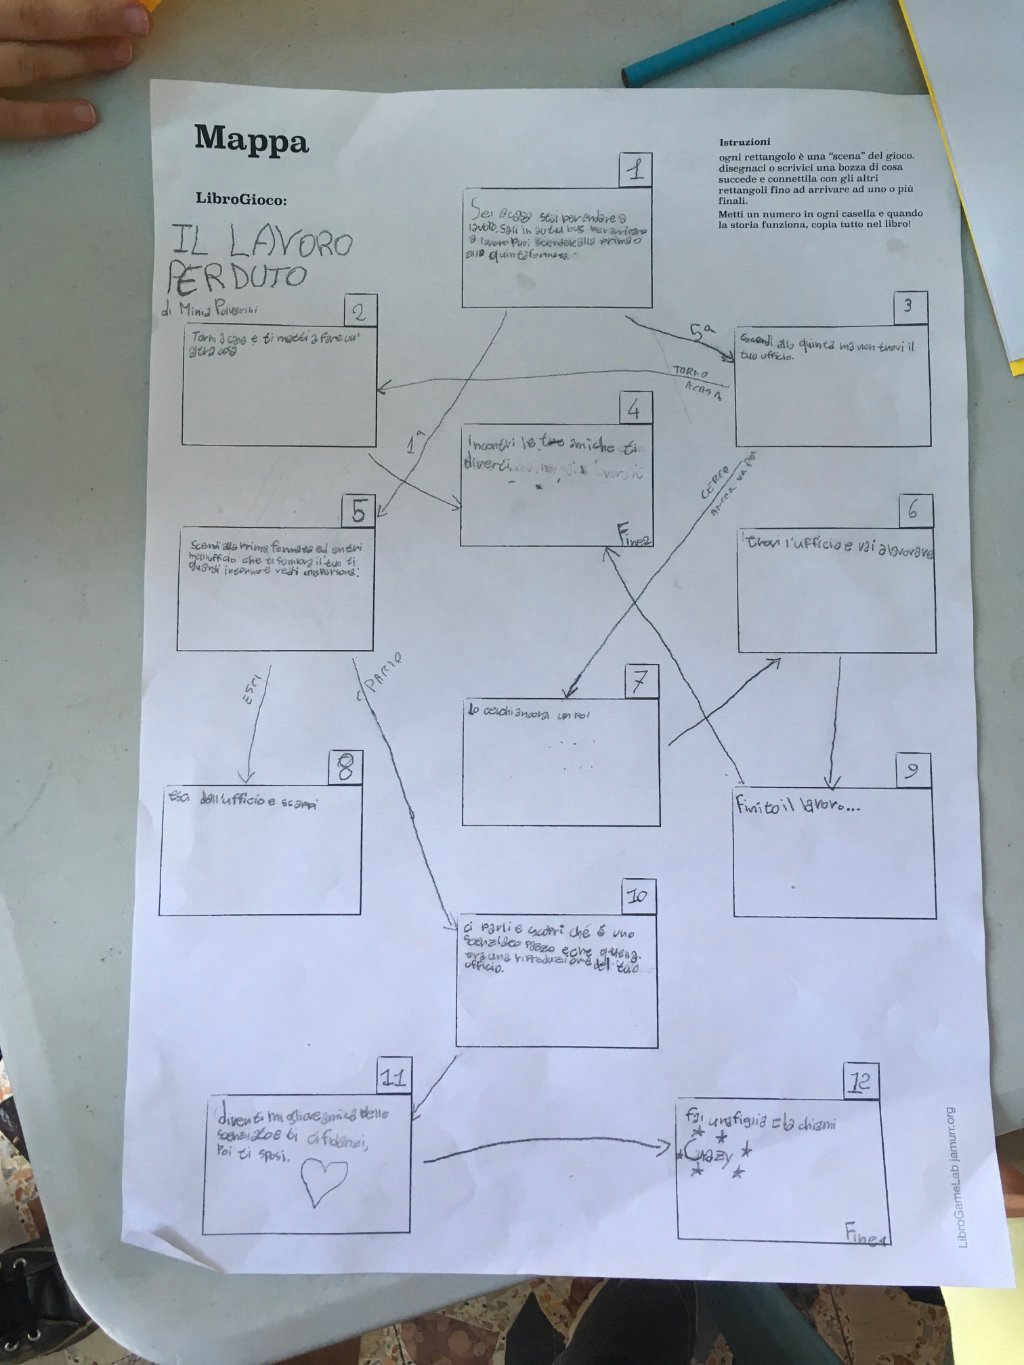 Mappa
LibroGioco:
IL LAVORO
PERDUTO
di Minia
Istruzioni
ogni rettangolo è una "scena" del gioco.
disegnaci o scrivici una bozza di cosa
succede e connettila con gli altri
rettangoli fino ad arrivare ad uno o più
finali.
Metti un numero in ogni casella e quando
la storia funziona, copia tutto nel libro!
1
Sei a casa stai per andare a
lavoro. Sali in autobus per arrivare
a lavoro puoi scendere alla prima o
alla quinta fermata.
2
Torni a casa e ti metti a fare un'
altra cosa
3
Scendi alla quinta ma non trovi il
tuo ufficio.
5ª
TORNO
A CASA
1ª
CERCO
ANCORA UN PO'
4
incontri le tue amiche ti
diverti
Fine
5
Scendi alla prima fermata ed entri
nell'ufficio che ti sembra il tuo ti
guardi intorno e vedi una persona.
6
trovi l'ufficio e vai a lavorare
ESCI
PARLO
7
lo cerchi ancora un po'
8
esci dall'ufficio e scappi
9
Finito il lavoro...
10
ci parli e scopri che è uno
scenziato pazzo e che quella
era una riproduzione del tuo
ufficio.
11
diventi migliore amica dello
scenziato e ti ci fidanzi,
poi ti sposi.
12
Fai una figlia e la chiami
Crazy
Fine
LibroGameLab jamurr.org